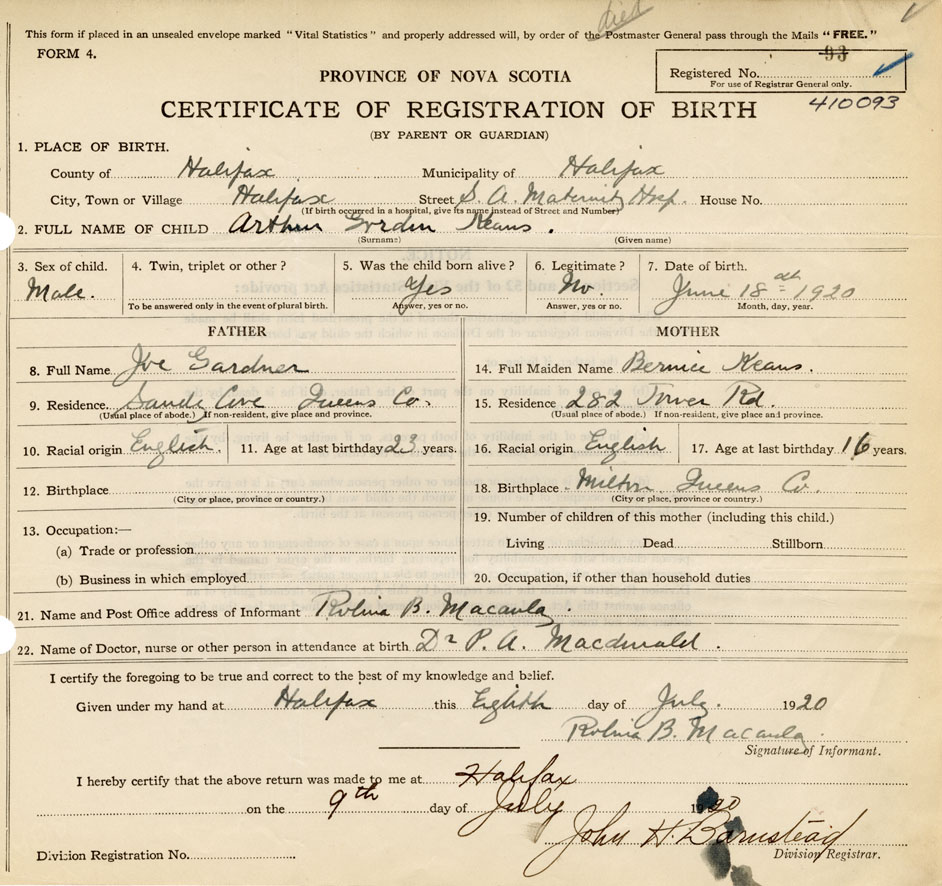 died
This form if placed in an unsealed envelope marked "Vital Statistics" and properly addressed will, by order of the Postmaster General pass through the Mails "FREE."
FORM 4.
93
Registered No.
For use of Registrar General only.
410093
PROVINCE OF NOVA SCOTIA
CERTIFICATE OF REGISTRATION OF BIRTH
(BY PARENT OR GUARDIAN)
1. PLACE OF BIRTH.
County of Halifax Municipality of Halifax
City, Town or Village Halifax Street S. A. Maternity Hosp. House No.
(If birth occurred in a hospital, give its name instead of Street and Number)
2. FULL NAME OF CHILD Arthur Gordon Keans.
(Surname) (Given name)
3. Sex of child. 4. Twin, triplet or other? 5. Was the child born alive? 6. Legitimate? 7. Date of birth.
Male. Yes No June 18th 1920
To be answered only in the event of plural birth. Answer, yes or no. Answer, yes or no. Month, day, year.
FATHER MOTHER
8. Full Name Joe Gardner 14. Full Maiden Name Bernice Keans.
9. Residence Sandy Cove Queens Co. 15. Residence 282 Tower Rd.
(Usual place of abode.) If non-resident, give place and province. (Usual place of abode.) If non-resident, give place and province.
10. Racial origin English. 11. Age at last birthday 23 years. 16. Racial origin English 17. Age at last birthday 16 years.
12. Birthplace 18. Birthplace Milton Queens Co.
(City or place, province or country.) (City or place, province or country.)
13. Occupation:— 19. Number of children of this mother (including this child.)
(a) Trade or profession Living Dead Stillborn
(b) Business in which employed 20. Occupation, if other than household duties
21. Name and Post Office address of Informant Robina B. Macaulay.
22. Name of Doctor, nurse or other person in attendance at birth Dr P. A. Macdonald.
I certify the foregoing to be true and correct to the best of my knowledge and belief.
Given under my hand at Halifax this Eighth day of July. 1920
Robina B. Macaulay.
Signature of Informant.
I hereby certify that the above return was made to me at Halifax
on the 9th day of July 1920
John H. Barnstead
Division Registration No. Division Registrar.